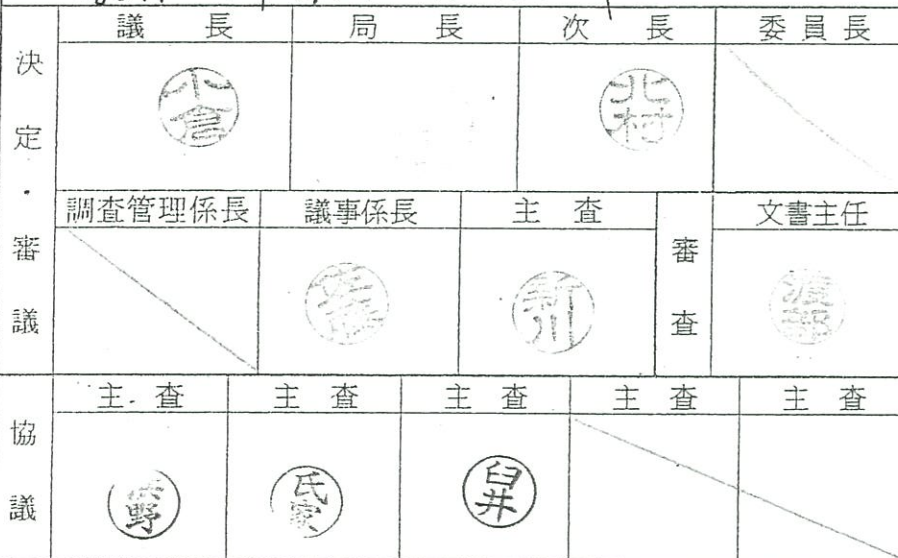 決定・審議
議長 局長 次長 委員長
小倉 北村
調査管理係長 議事係長 主査 審査 文書主任
新川 渡部
協議
主査 主査 主査 主査 主査
氏家 臼井